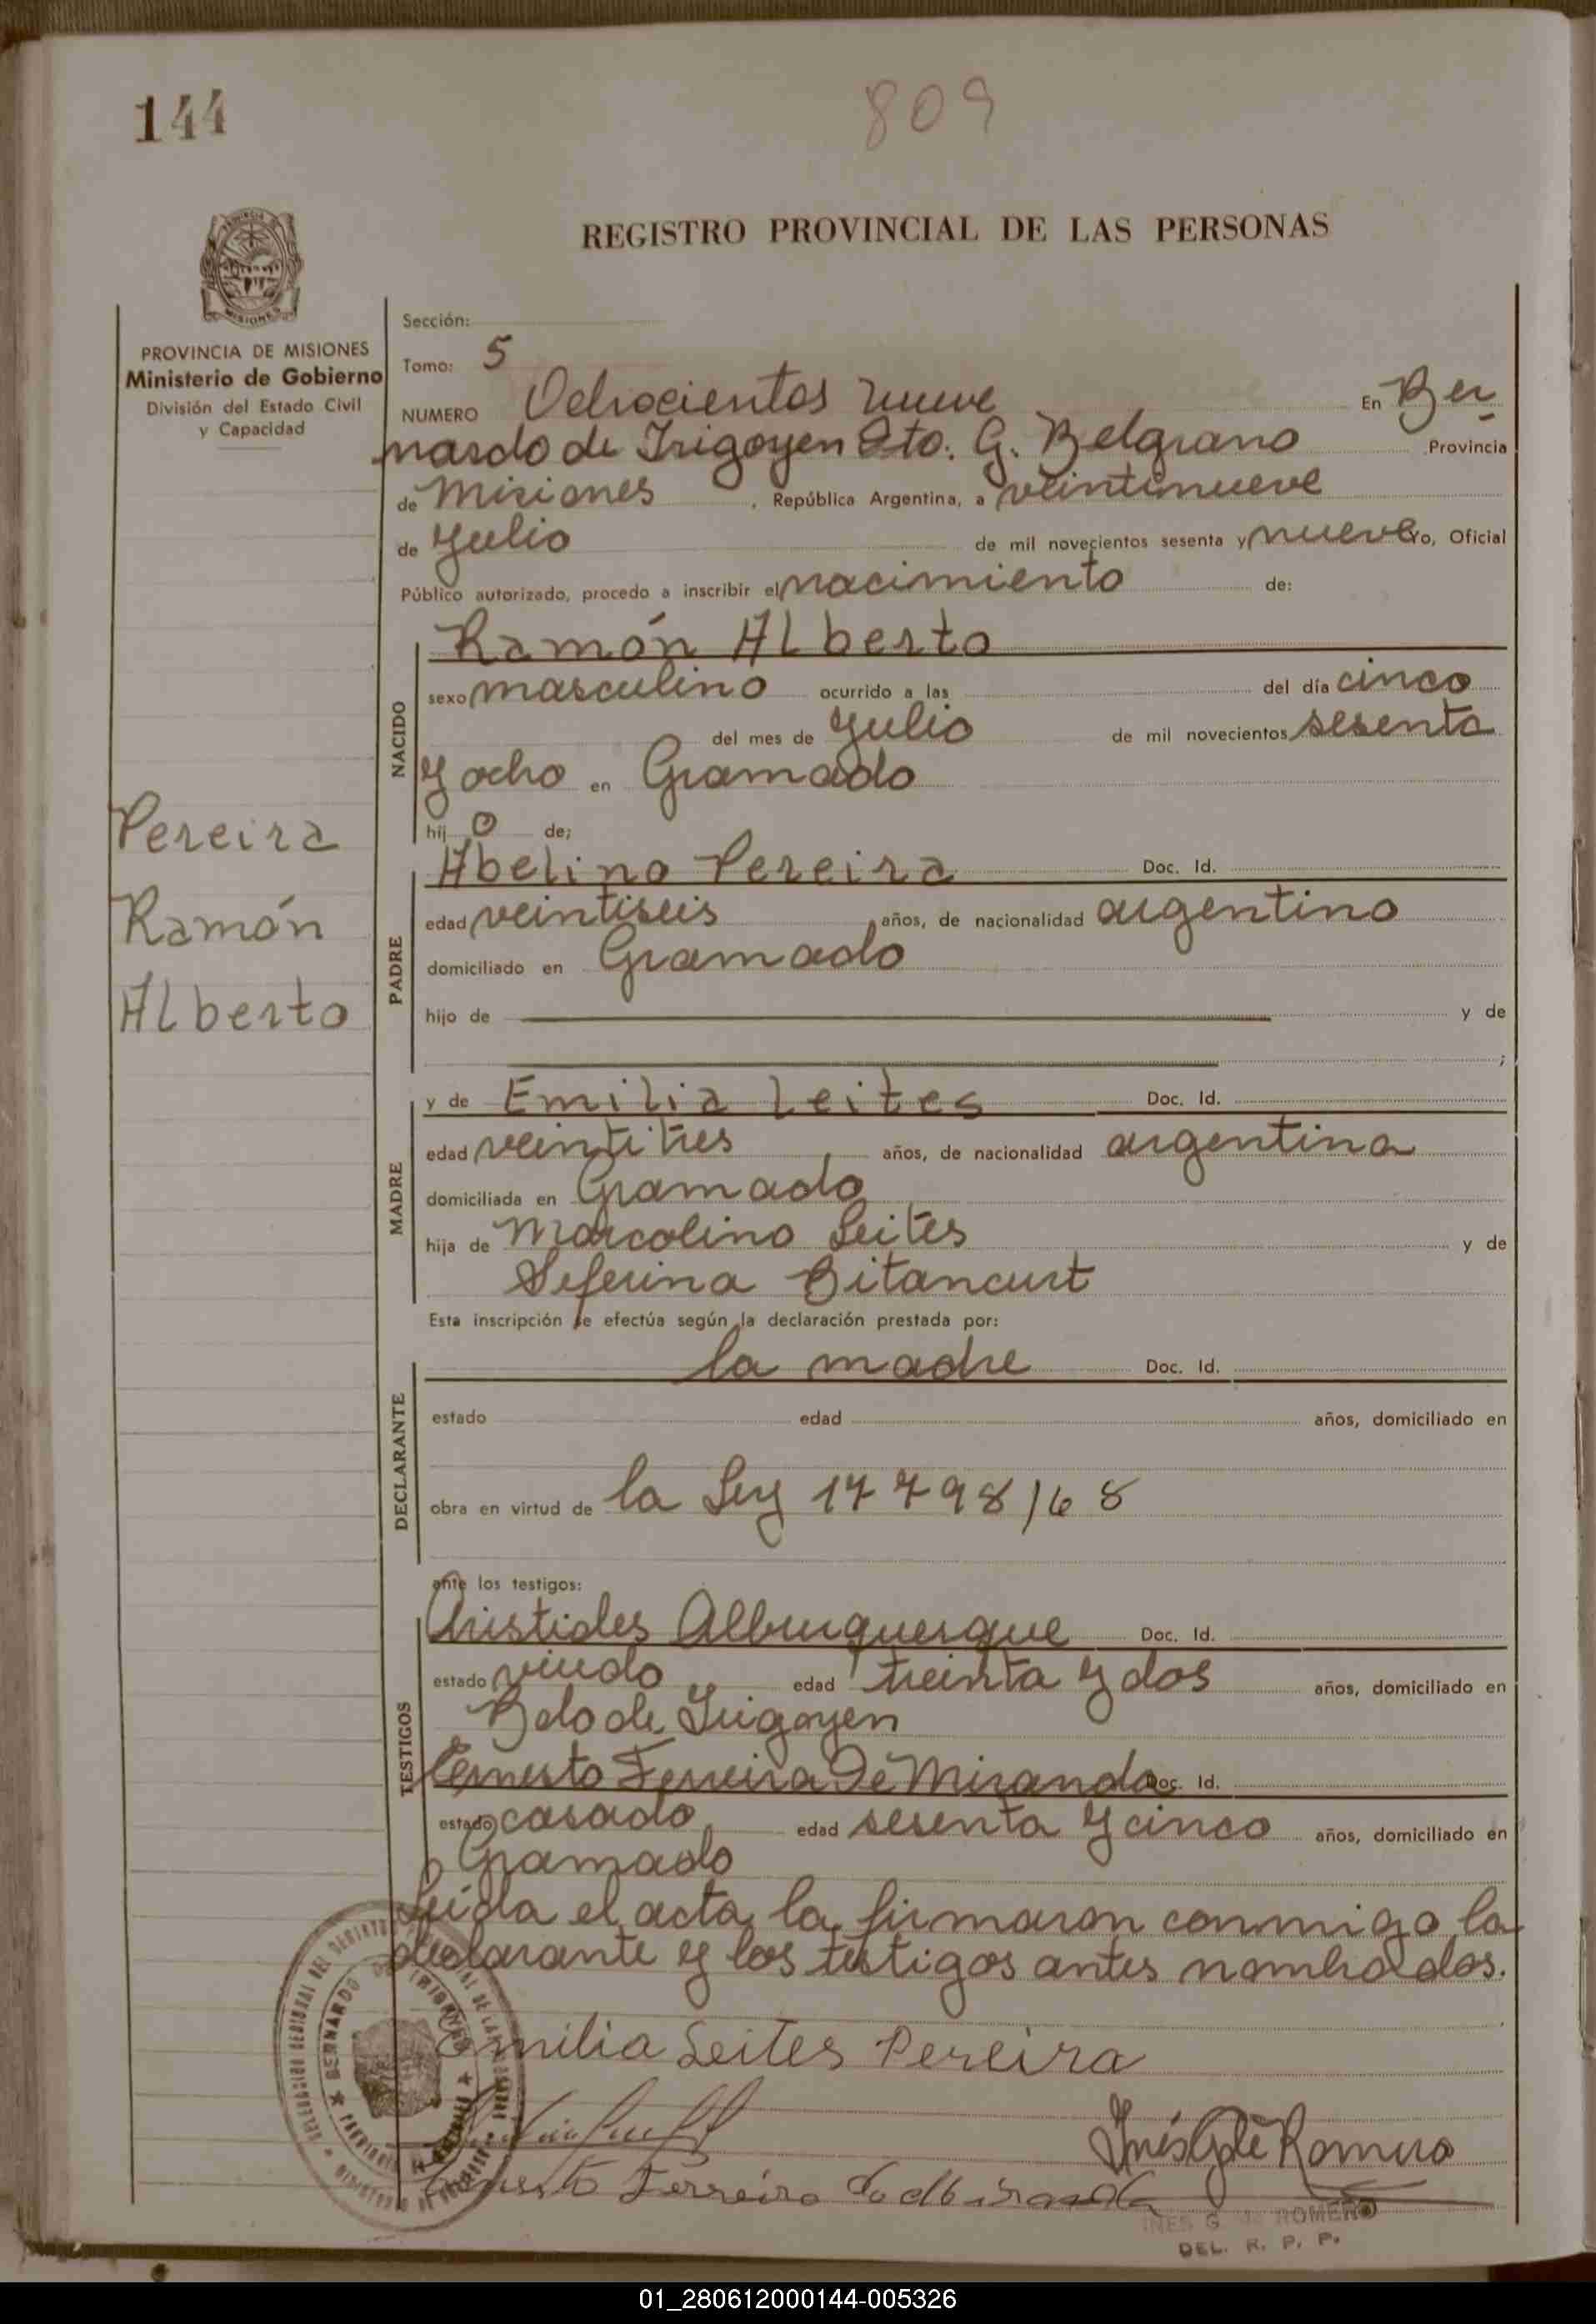 144
809
REGISTRO PROVINCIAL DE LAS PERSONAS
PROVINCIA DE MISIONES
Ministerio de Gobierno
División del Estado Civil
y Capacidad
Sección:
Tomo: 5
NUMERO Ochocientos nueve En Ber
nardo de Irigoyen Dto. G. Belgrano Provincia
de Misiones, República Argentina, a veintinueve
de Julio de mil novecientos sesenta y nueve Yo, Oficial
Público autorizado, procedo a inscribir el nacimiento de:
Ramón Alberto
NACIDO
sexo masculino ocurrido a las del día cinco
del mes de Julio de mil novecientos sesenta
y ocho en Gramado
hijo de;
Pereira
Ramón
Alberto
PADRE
Abelino Pereira Doc. Id.
edad veintiseis años, de nacionalidad argentino
domiciliado en Gramado
hijo de y de
;
MADRE
y de Emilia Leites Doc. Id.
edad veintitres años, de nacionalidad argentina
domiciliada en Gramado
hija de Marcolino Leites y de
Seferina Bitancurt
Esta inscripción se efectúa según la declaración prestada por:
DECLARANTE
la madre Doc. Id.
estado edad años, domiciliado en
obra en virtud de la Ley 17798/68
ante los testigos:
TESTIGOS
Aristides Albuquerque Doc. Id.
estado viudo edad treinta y dos años, domiciliado en
Bdo de Irigoyen
Ernesto Ferreira De Miranda Doc. Id.
estado casado edad sesenta y cinco años, domiciliado en
Gramado
Leida el acta, la firmaron conmigo la
declarante y los testigos antes nombrados.
Emilia Leites Pereira
Inés G de Romero
Ernesto Ferreira de Miranda
INES G. DE ROMERO
DEL. R. P. P.
BERNARDO DE IRIGOYEN
01_280612000144-005326